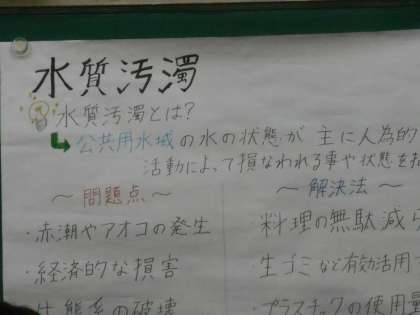 水質汚濁
水質汚濁とは?
公共用水域の水の状態が 主に人為的
活動によって損なわれる事や状態を指
～問題点～
・赤潮やアオコの発生
・経済的な損害
生態系の破壊
～解決法～
・料理の無駄減
・生ゴミなど有効活用
・プラスチックの使用量